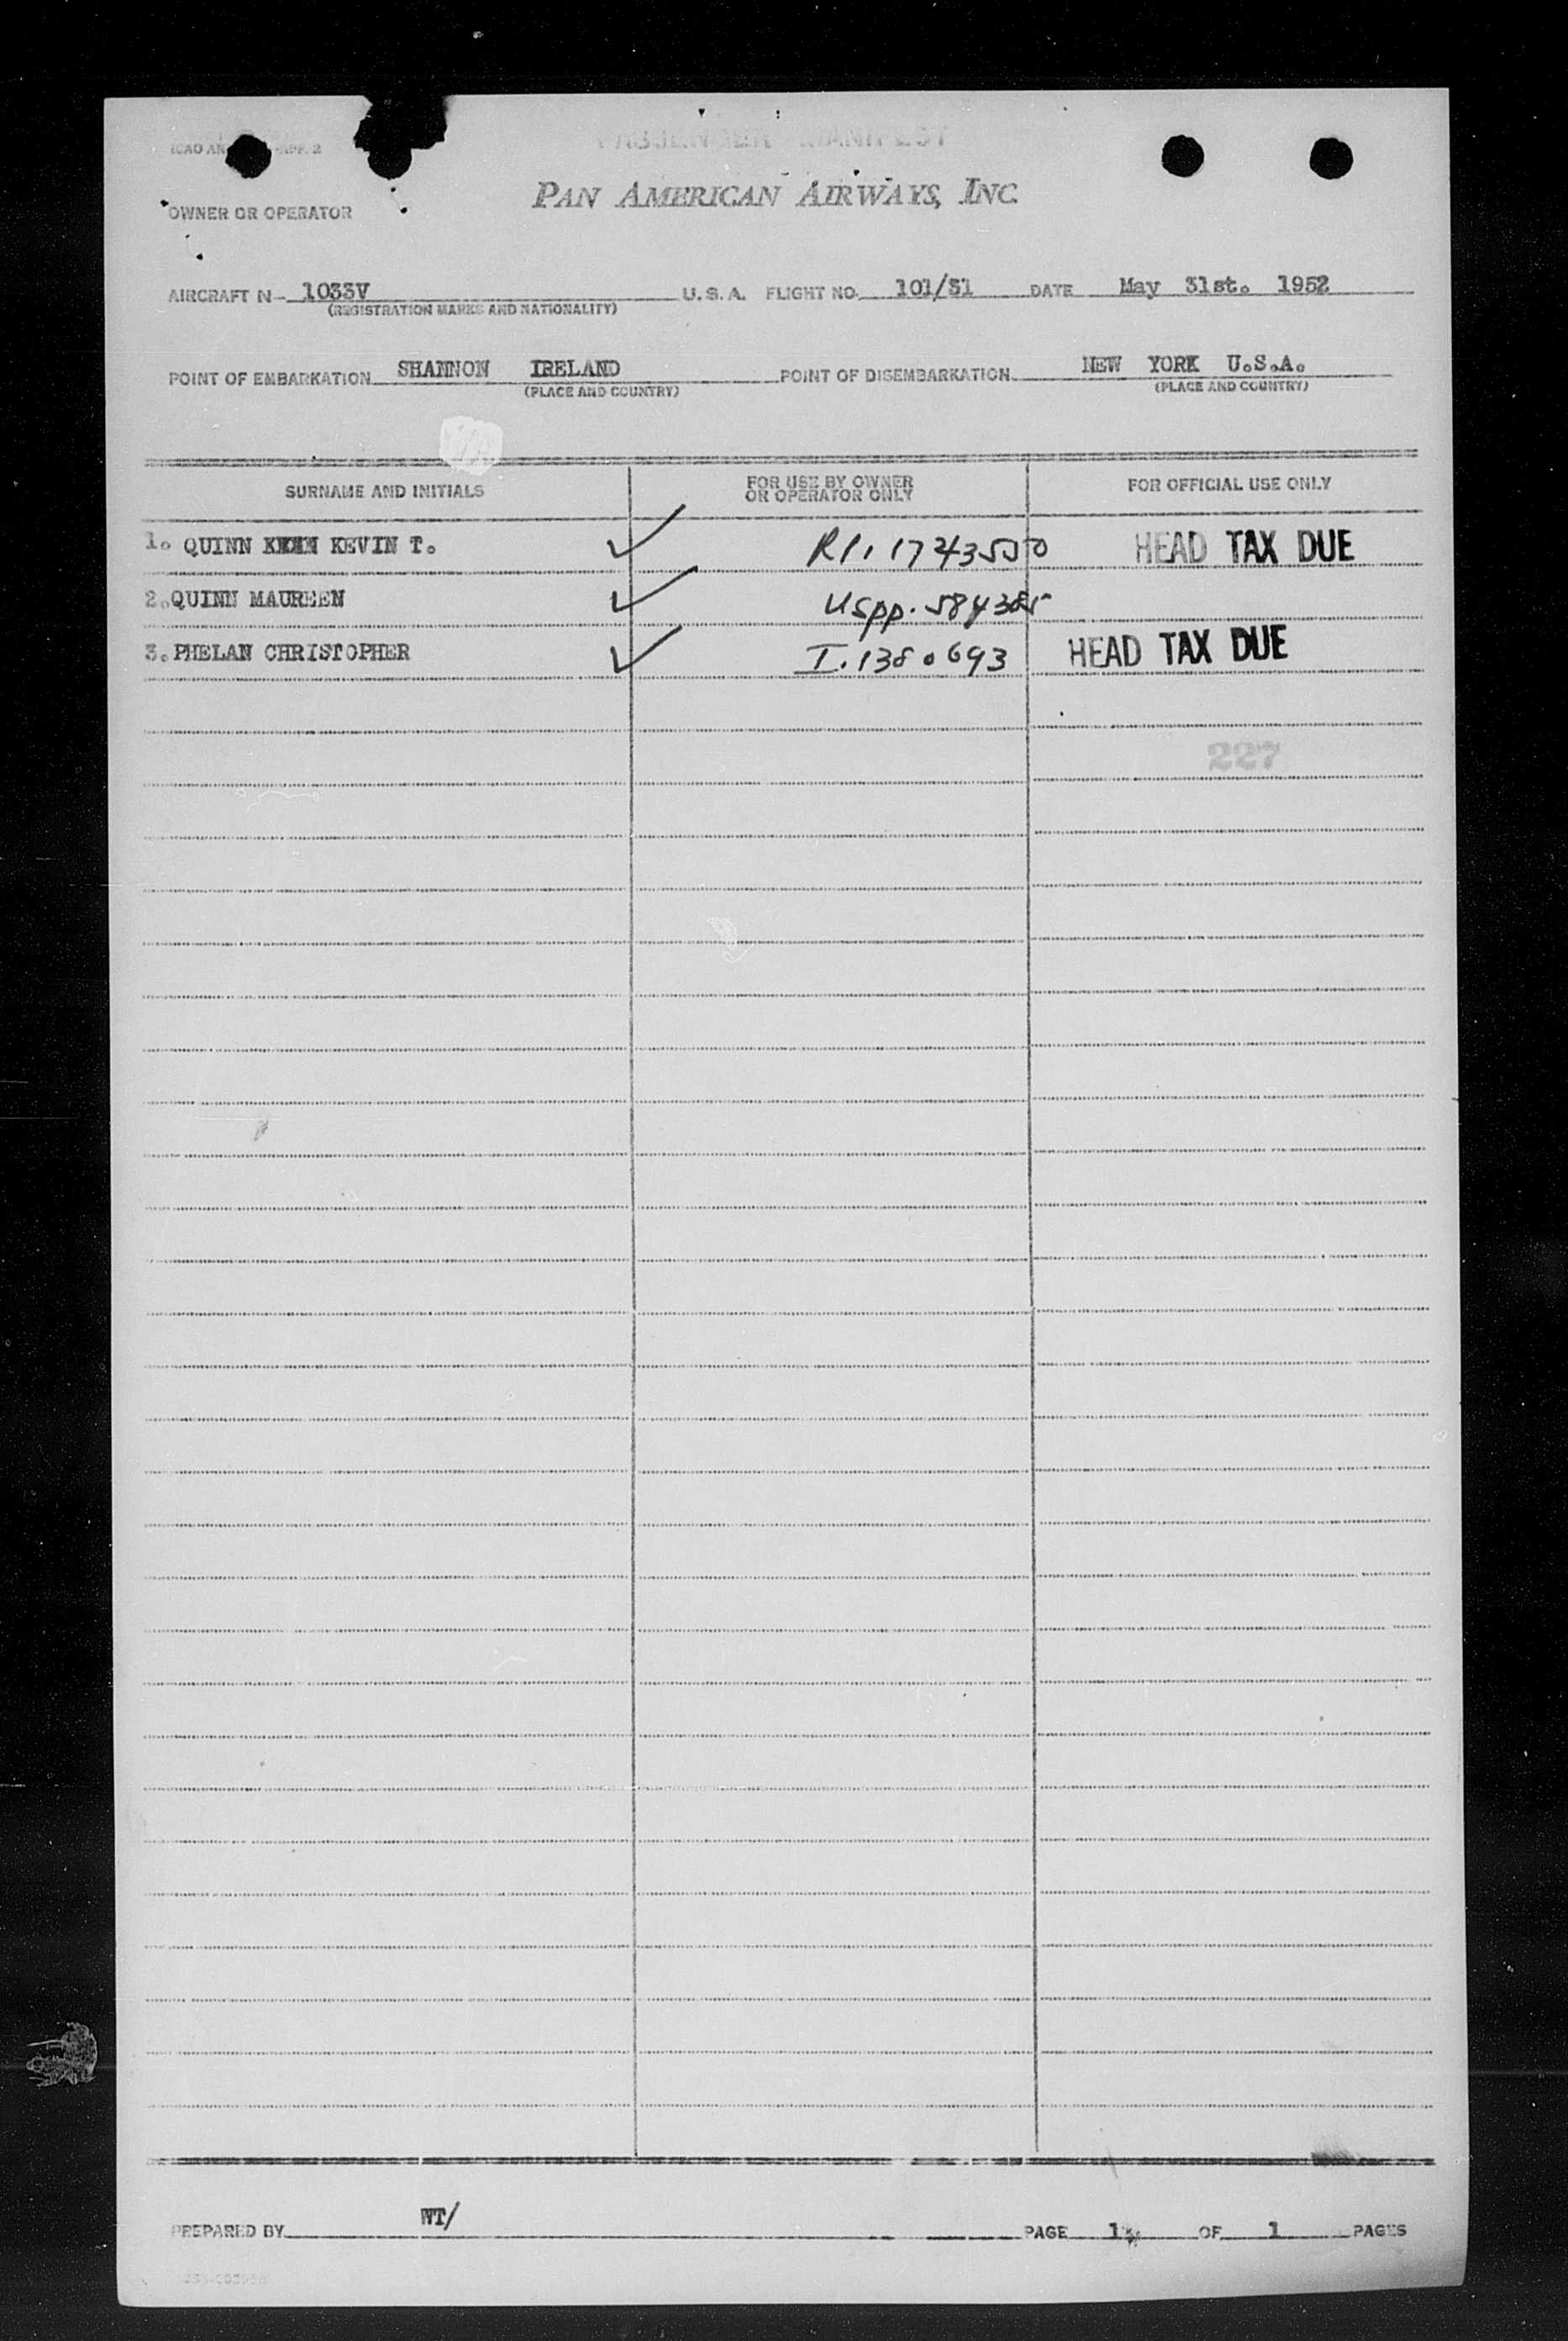 PASSENGER MANIFEST
PAN AMERICAN AIRWAYS, INC.
OWNER OR OPERATOR
AIRCRAFT N- 1033V U.S.A. FLIGHT NO. 101/31 DATE May 31st. 1952
(REGISTRATION MARKS AND NATIONALITY)
POINT OF EMBARKATION SHANNON IRELAND POINT OF DISEMBARKATION NEW YORK U.S.A.
(PLACE AND COUNTRY) (PLACE AND COUNTRY)
SURNAME AND INITIALS FOR USE BY OWNER OR OPERATOR ONLY FOR OFFICIAL USE ONLY
1. QUINN KEVIN T. ✓ RP. 1743550 HEAD TAX DUE
2. QUINN MAUREEN ✓ USpp. 584385
3. PHELAN CHRISTOPHER ✓ I. 1380693 HEAD TAX DUE
227
PREPARED BY WT/ PAGE 1 OF 1 PAGES